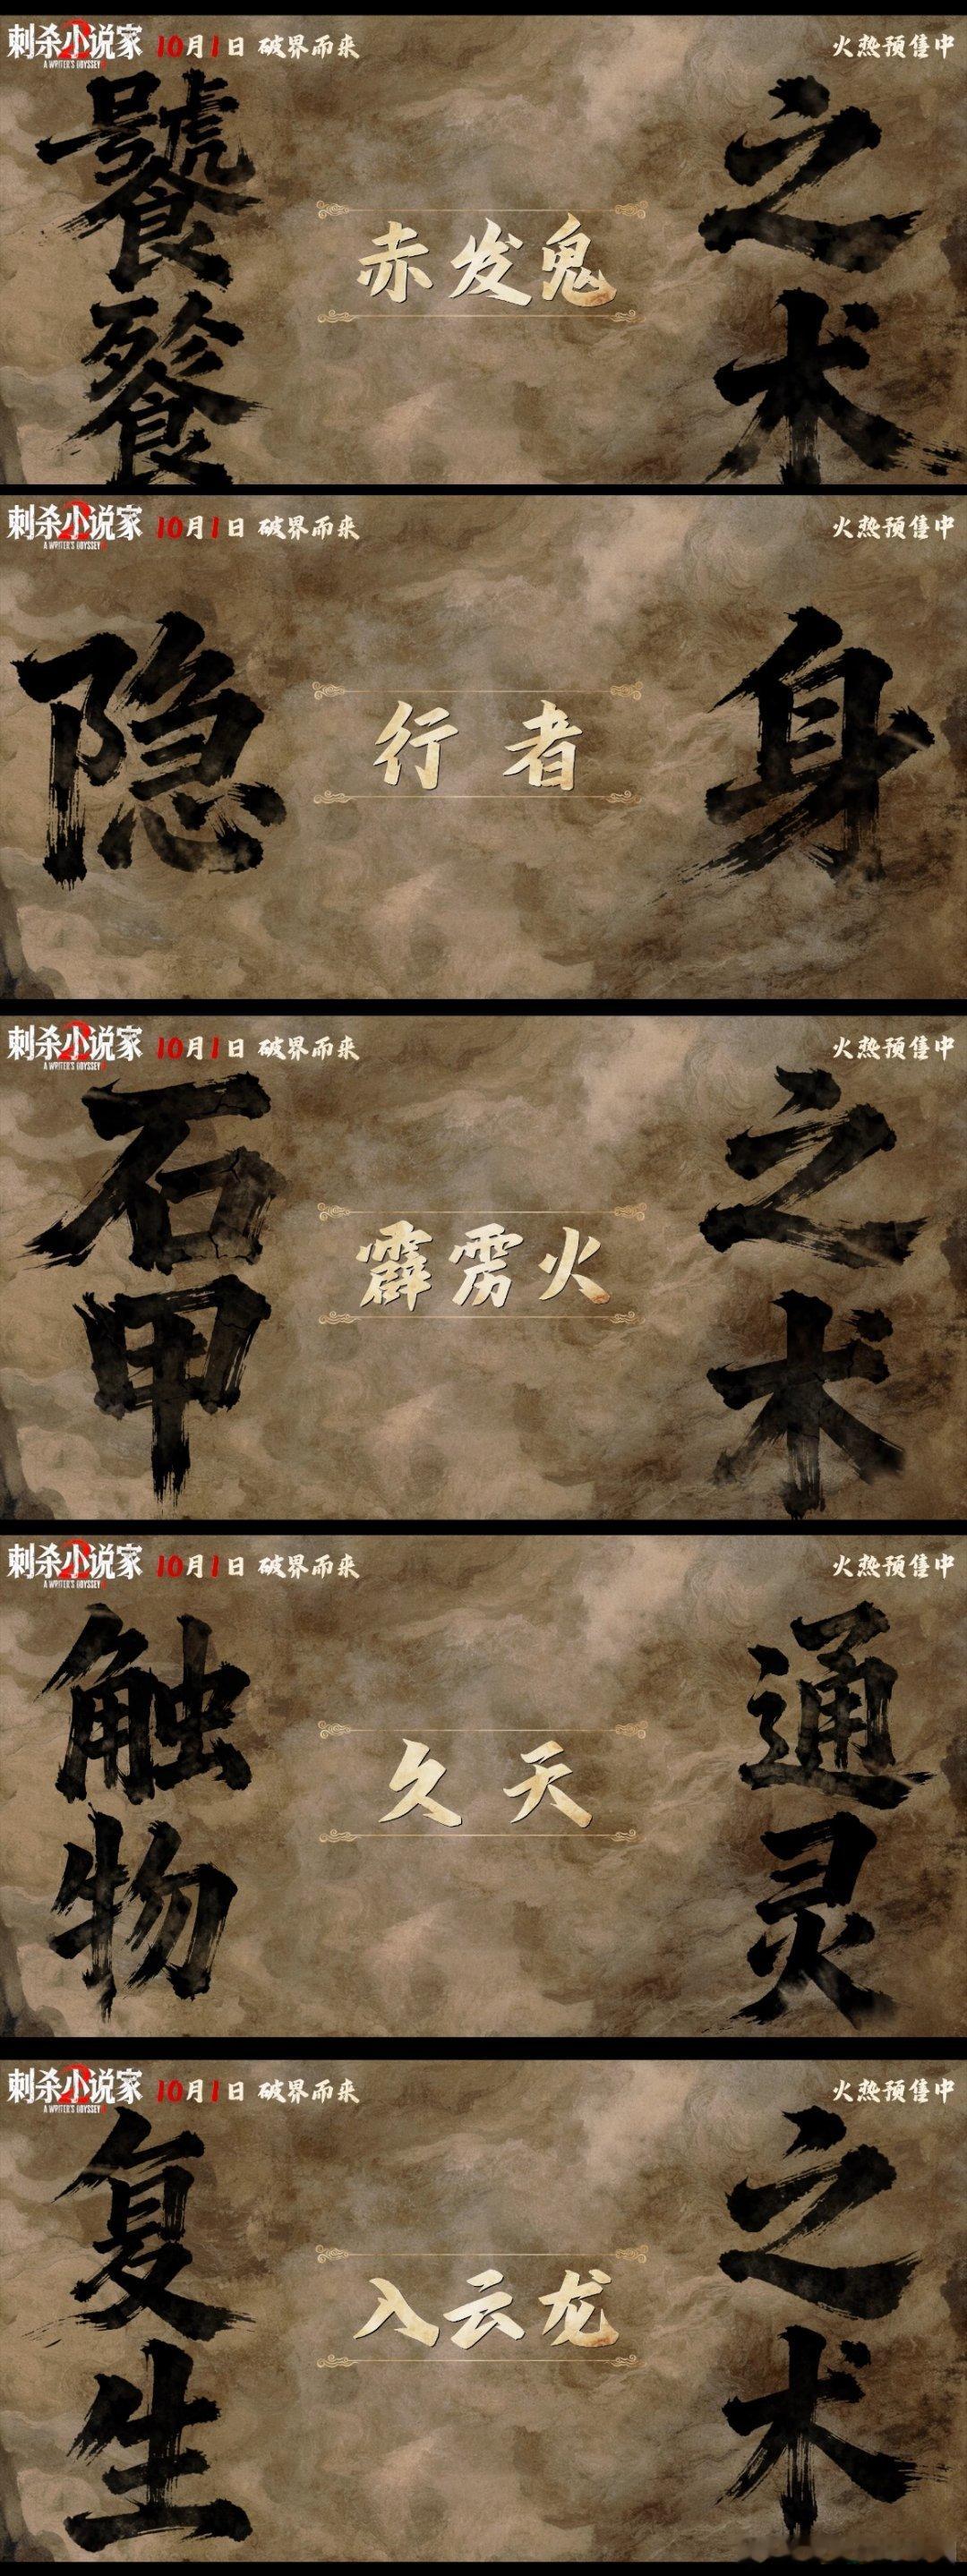 刺杀小说家2 10月1日 破界而来 火热预售中
A WRITER'S ODYSSEY 2
饕餮 之术
赤发鬼
刺杀小说家2 10月1日 破界而来 火热预售中
A WRITER'S ODYSSEY 2
隐 身
行者
刺杀小说家2 10月1日 破界而来 火热预售中
A WRITER'S ODYSSEY 2
石甲 之术
霹雳火
刺杀小说家2 10月1日 破界而来 火热预售中
A WRITER'S ODYSSEY 2
触物 通灵
久天
刺杀小说家2 10月1日 破界而来 火热预售中
A WRITER'S ODYSSEY 2
复生 之术
入云龙